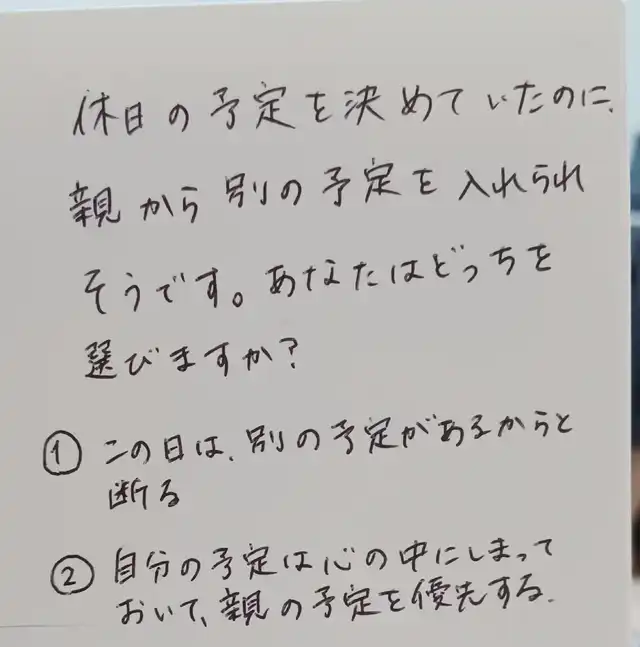 休日の予定を決めていたのに、
親から別の予定を入れられ
そうです。あなたはどっちを
選びますか?
① この日は、別の予定があるからと
断る
② 自分の予定は心の中にしまって
おいて、親の予定を優先する.